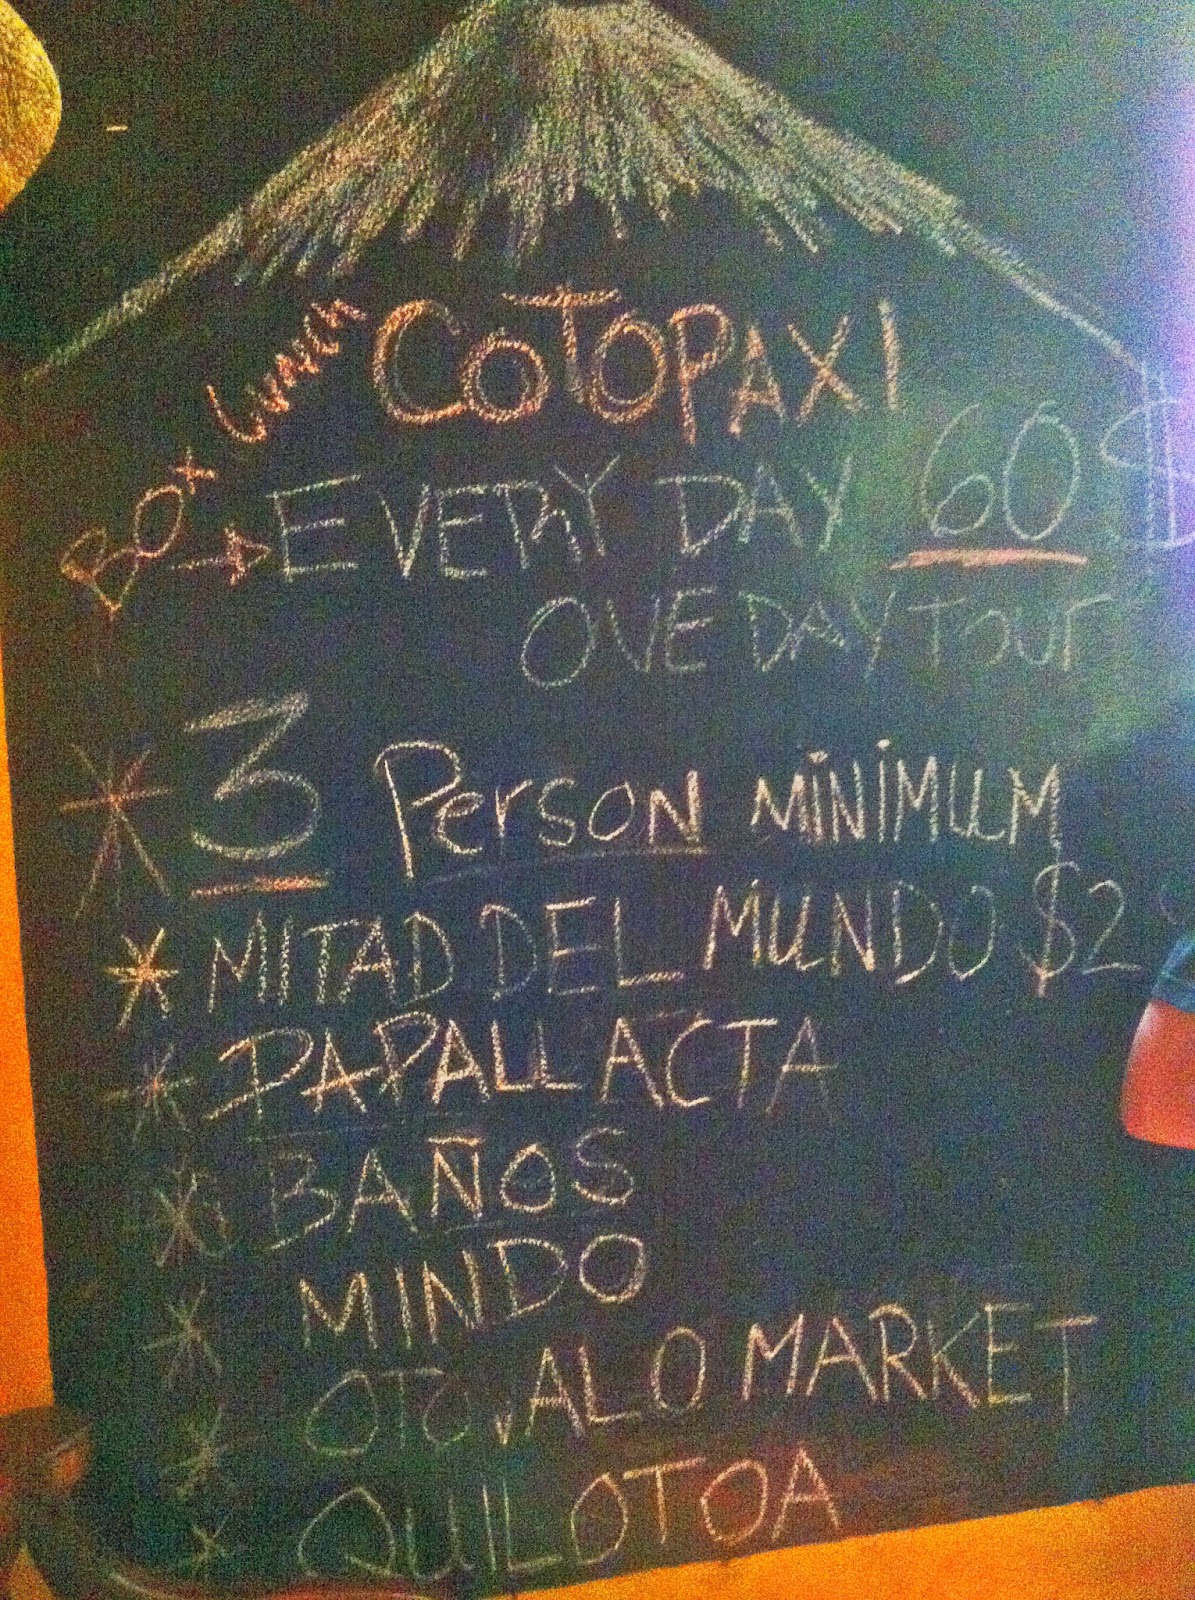 COTOPAXI
BOX LUNCH → EVERY DAY 60 $
ONE DAY TOUR
* 3 Person MINIMUM
* MITAD DEL MUNDO $2
* PAPALLACTA
* BAÑOS
* MINDO
* OTOVALO MARKET
* QUILOTOA